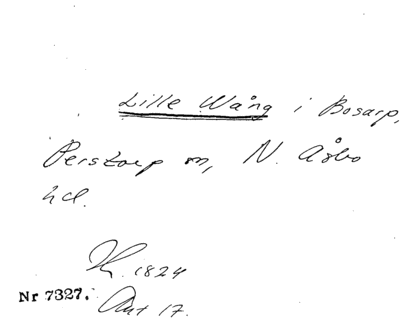 Lille Wång i Bosarp,
Perstorp sn, N. Åsbo
hd.
1824
Nr 7327. Akt 17.